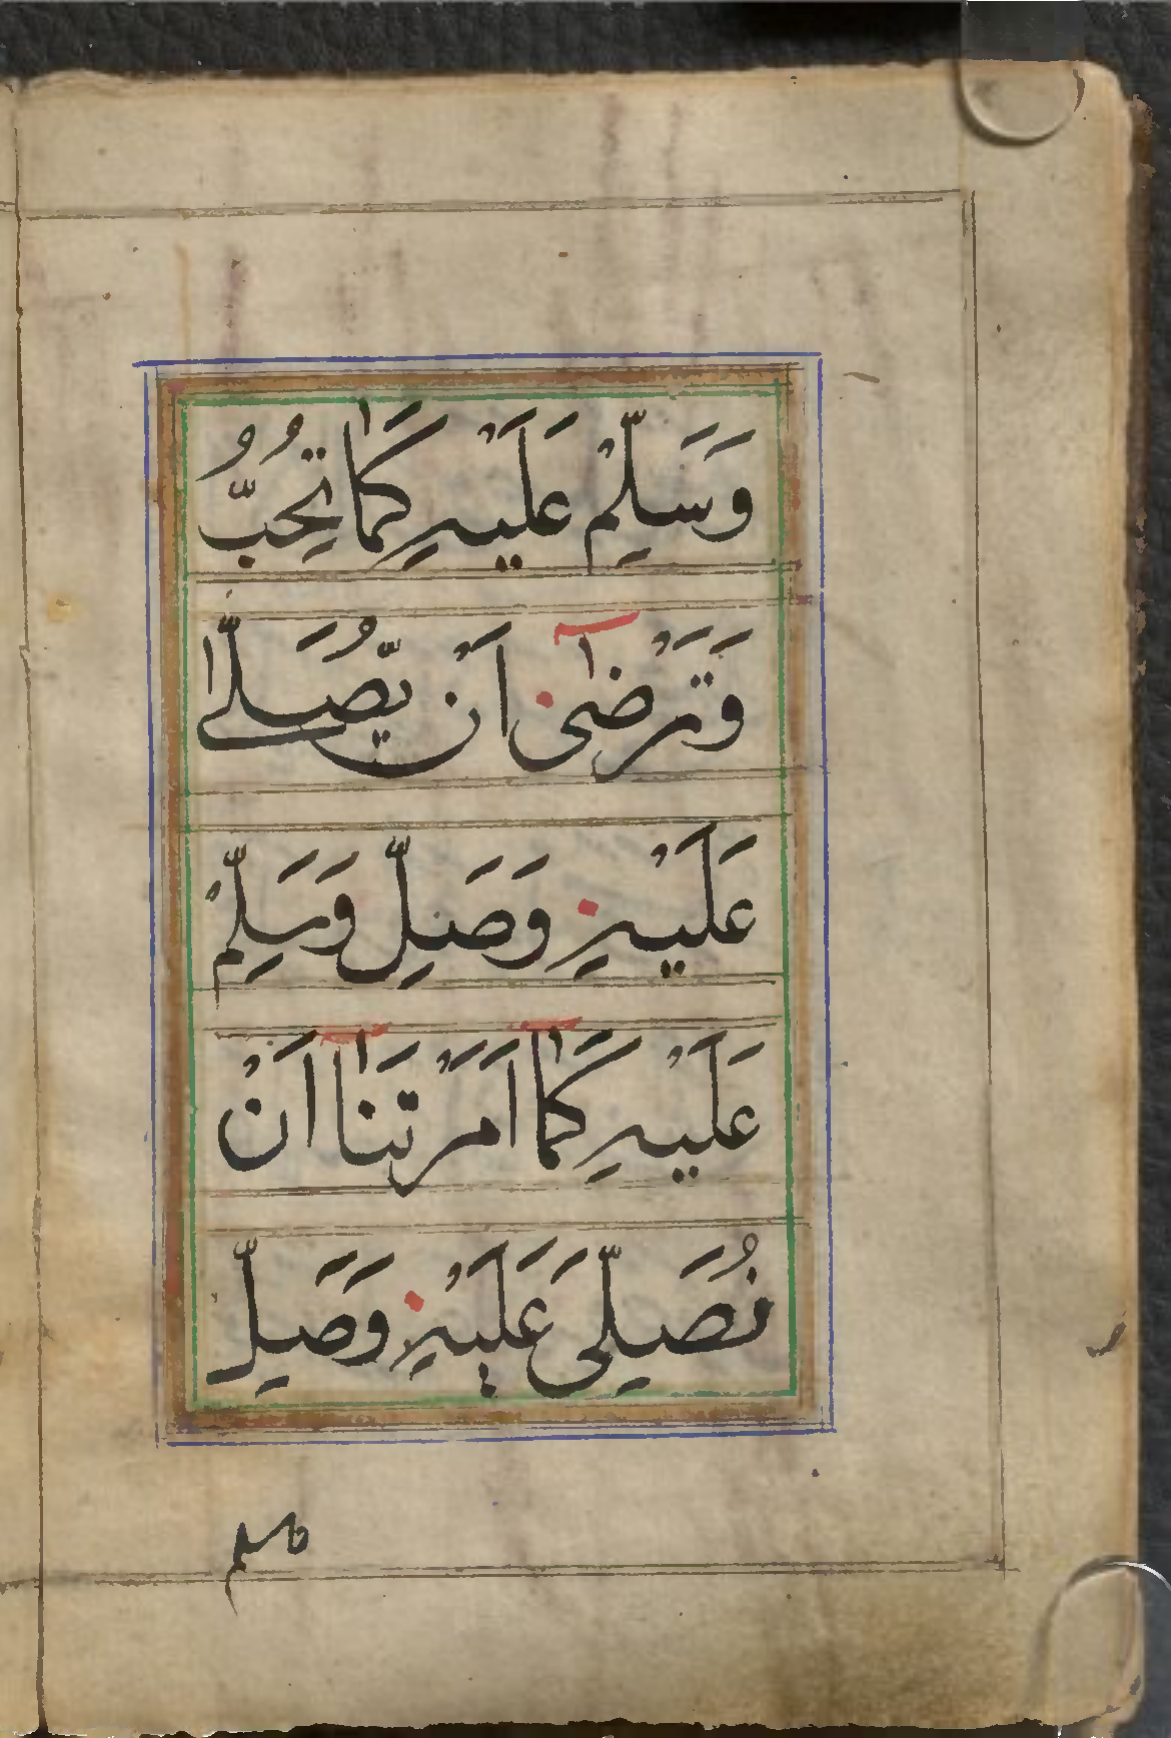 وَسَلِّمْ عَلَيْهِ كَمَا تُحِبُّ
وَتَرْضٰى اَنْ يُّصَلّٰى
عَلَيْهِ وَصَلِّ وَسَلِّمْ
عَلَيْهِ كَمَا اَمَرْتَنَا اَنْ
نُصَلِّىَ عَلَيْهِ وَصَلِّ
وسلم